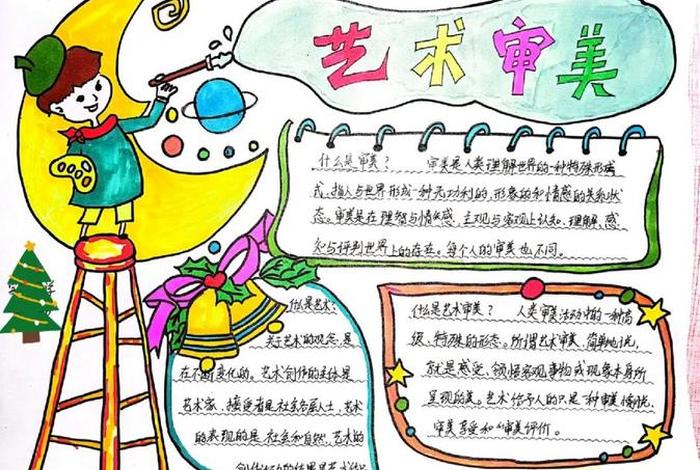 艺术审美
什么是审美？ 审美是人类理解世界的一种特殊形
式，指人与世界形成一种无功利的、形象的和情感的关系状
态。审美是在理智与情感、主观与客观上认知、理解、感
知与评判世界上的存在。每个人的审美也不同。
什么是艺术？
关于艺术的观念，是
在不断变化的。艺术创作的主体是
艺术家，接受者是社会各层人士，艺术
的表现的是社会和自然，艺术的
什么是艺术审美？ 人类审美活动中的一种高
级、特殊的形态。所谓艺术审美，简单地说，
就是感受、领悟客观事物或现象本身所
呈现的美。艺术给予人的只是一种审美情境，
审美享受和审美评价。